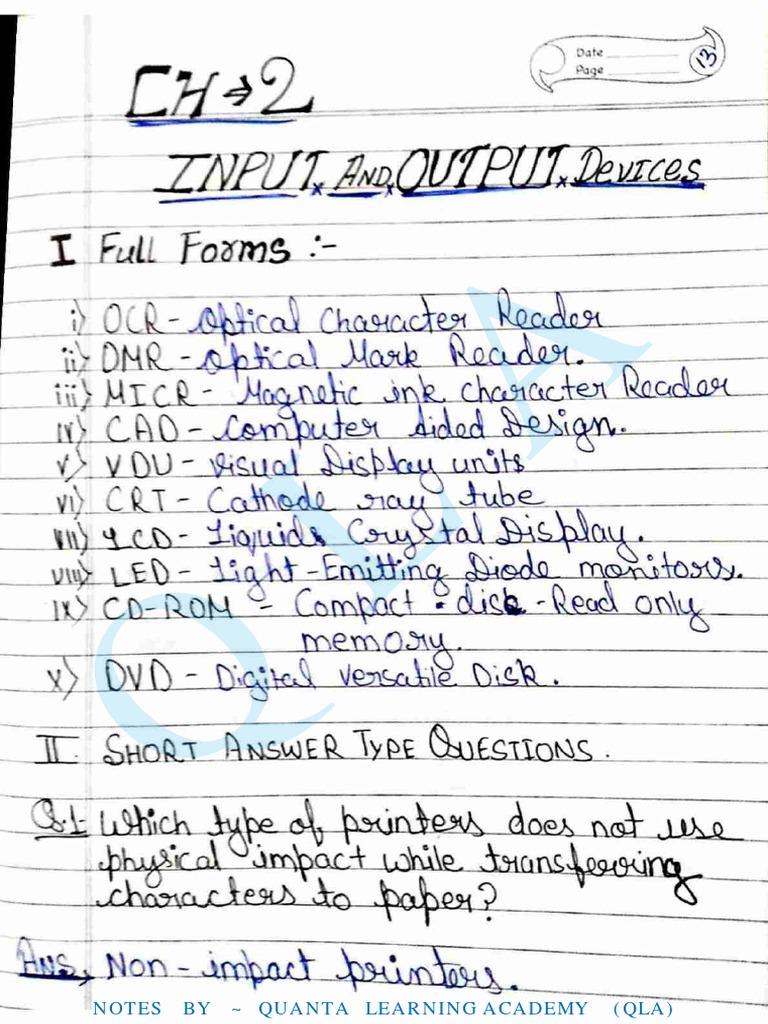 Date
Page
13
CH → 2
INPUT AND OUTPUT DEVICES
I Full Forms :-
i) OCR - Optical Character Reader
ii) OMR - Optical Mark Reader.
iii) MICR - Magnetic ink character Reader
iv) CAD - Computer Aided Design.
v) VDU - Visual Display units
vi) CRT - Cathode ray tube
vii) LCD - Liquid Crystal Display.
viii) LED - Light-Emitting Diode monitors.
ix) CD-ROM - Compact disc - Read only
memory.
x) DVD - Digital versatile Disk.
II. SHORT ANSWER TYPE QUESTIONS.
Q.1 Which type of printers does not use
physical impact while transferring
characters to paper?
Ans, Non-impact printers.
QLA
NOTES BY ~ QUANTA LEARNING ACADEMY (QLA)